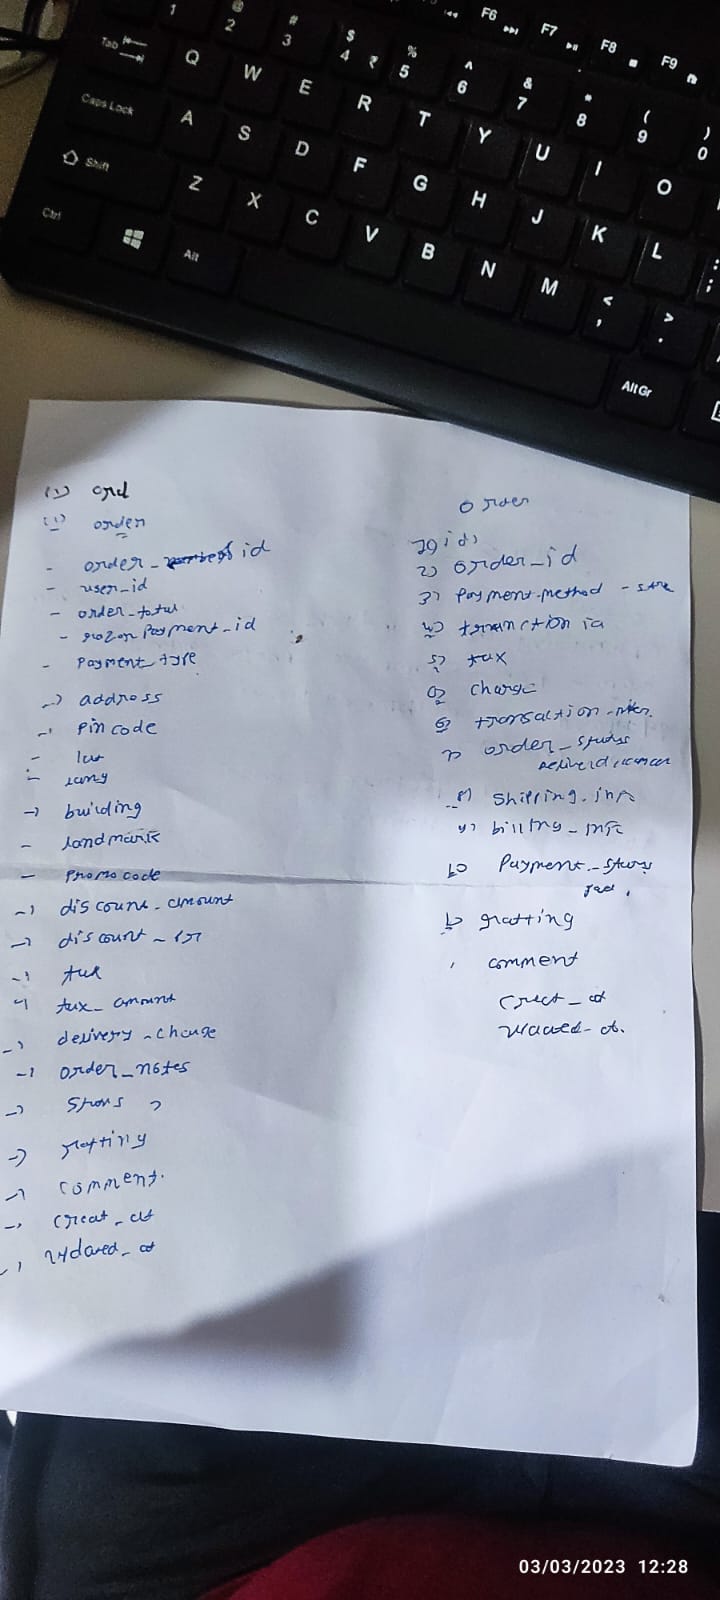 F6
F7
F8
F9
1
@
2
#
3
$
4 ₹
%
5
^
6
&
7
*
8
(
9
)
0
Tab
Q W E R T Y U I O
Caps Lock
A S D F G H J K L
Shift
Z X C V B N M < , > .
Ctrl
Alt
Alt Gr
(1) ord
(1) order
- order_ id
- user_id
- order_total
- Payment_id
- Payment_type
address
Pin code
- lat
- long
building
- landmark
- Promo code
discount_amount
discount_
tax
tax_amount
delivery_charge
order_notes
ratting
comment.
creat_at
updated_at
Order
id
2) order_id
3) Payment_method -
4)
5) tax
charge
6) transaction
7) order_status
8) Shipping_info
9) billing_info
10 Payment_status
ratting
comment
creat_at
updated_at.
03/03/2023 12:28